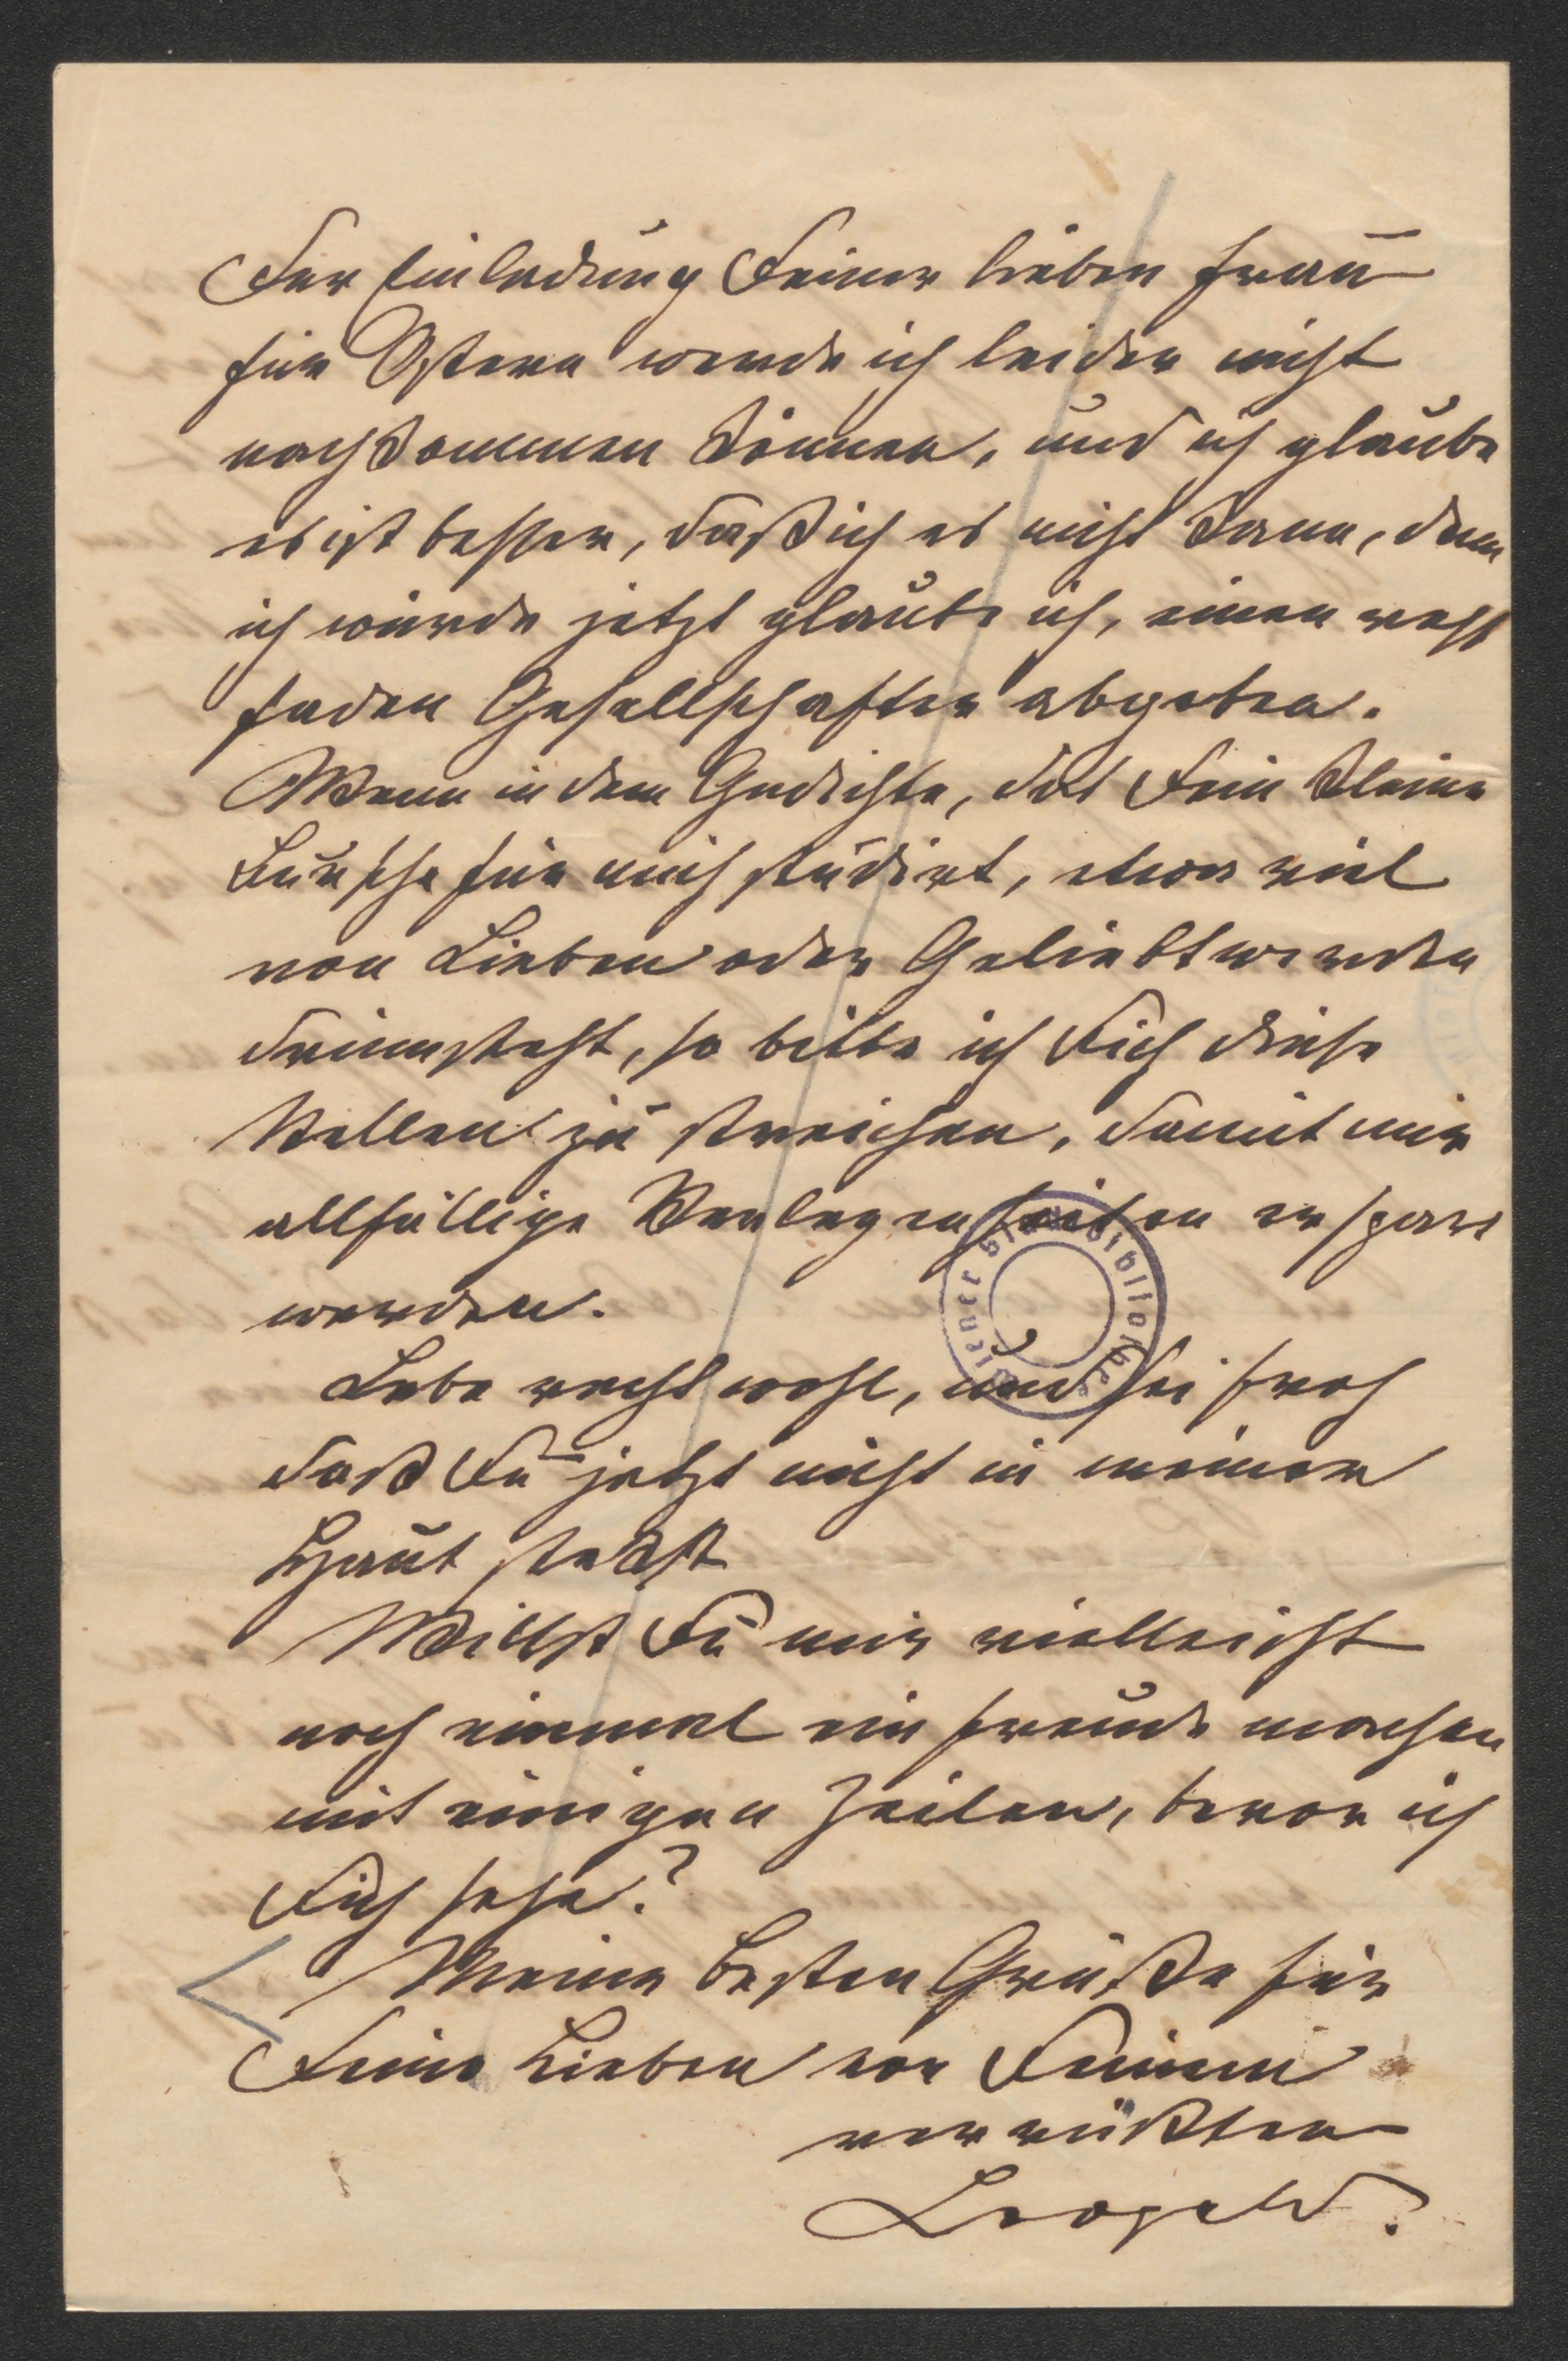 Der Einladung Deiner lieben Frau
für Ostern werde ich leider nicht
nachkommen können, und ich glaube
es ist besser, daß ich es nicht kann, denn
ich würde jetzt glaube ich, einen recht
faden Gesellschafter abgeben.
Wenn in dem Gedichte, das Dein kleiner
Bursche für mich studirt, etwas viel
von Lieben oder Geliebtwerden
drinnsteht, so bitte ich Dich diese
Stellen zu streichen, damit mir
allfällige Verlegenheiten erspart
werden.
Wiener Stadtbibliothek
Lebe recht wohl, und sei froh
daß Du jetzt nicht in meiner
Haut steckst
Willst Du mir vielleicht
noch einmal ein Freude machen
mit einigen Zeilen, bevor ich
Dich sehe?
Meine besten Grüße für
Deine Lieben von Deinem
verrückten
Leopold.